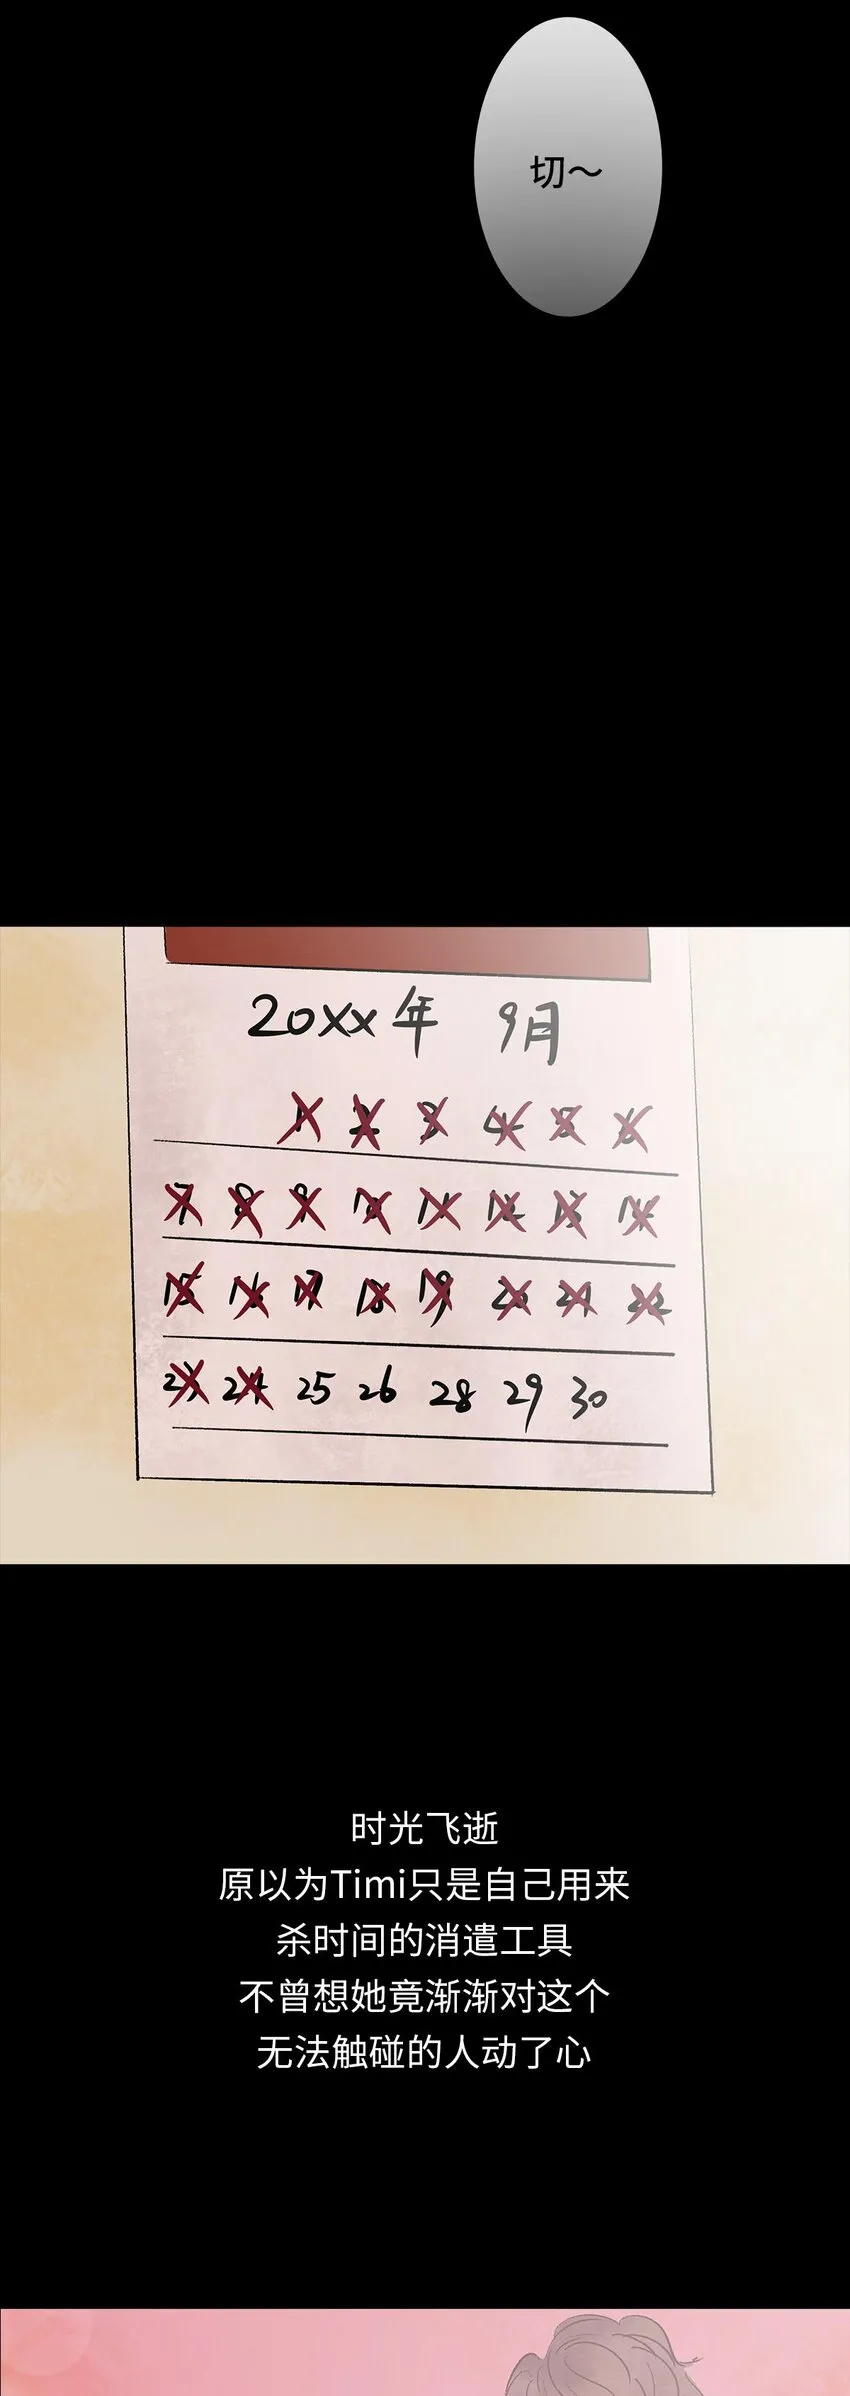 切～
20xx年 9月
1 2 3 4 5 6
7 8 9 10 11 12 13 14
15 16 17 18 19 20 21 22
23 24 25 26 28 29 30
时光飞逝
原以为Timi只是自己用来
杀时间的消遣工具
不曾想她竟渐渐对这个
无法触碰的人动了心